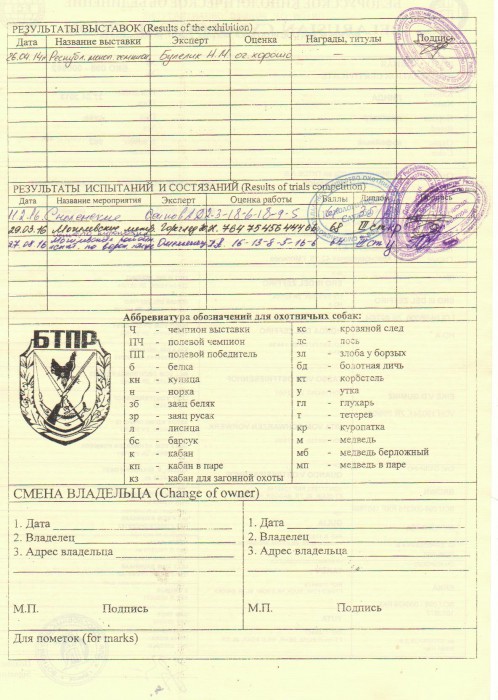 РЕЗУЛЬТАТЫ ВЫСТАВОК (Results of the exhibition)
Дата Название выставки Эксперт Оценка Награды, титулы Подпись
26.04.14г. Республ. Н.М. оч. хорошо —
РЕЗУЛЬТАТЫ ИСПЫТАНИЙ И СОСТЯЗАНИЙ (Results of trials competition)
Дата Название мероприятия Эксперт Оценка работы Баллы Диплом Подпись
11.2.16. Смоленские
29.03.16 68
27.08.16 64
Аббревиатура обозначений для охотничьих собак:
БТПР
Ч - чемпион выставки
ПЧ - полевой чемпион
ПП - полевой победитель
б - белка
кн - куница
н - норка
зб - заяц беляк
зр - заяц русак
л - лисица
бс - барсук
к - кабан
кп - кабан в паре
кз - кабан для загонной охоты
кс - кровяной след
лс - лось
зл - злоба у борзых
бд - болотная дичь
кт - коростель
у - утка
гл - глухарь
т - тетерев
кр - куропатка
м - медведь
мб - медведь берложный
мп - медведь в паре
СМЕНА ВЛАДЕЛЬЦА (Change of owner)
1. Дата
2. Владелец
3. Адрес владельца
М.П. Подпись
1. Дата
2. Владелец
3. Адрес владельца
М.П. Подпись
Для пометок (for marks)